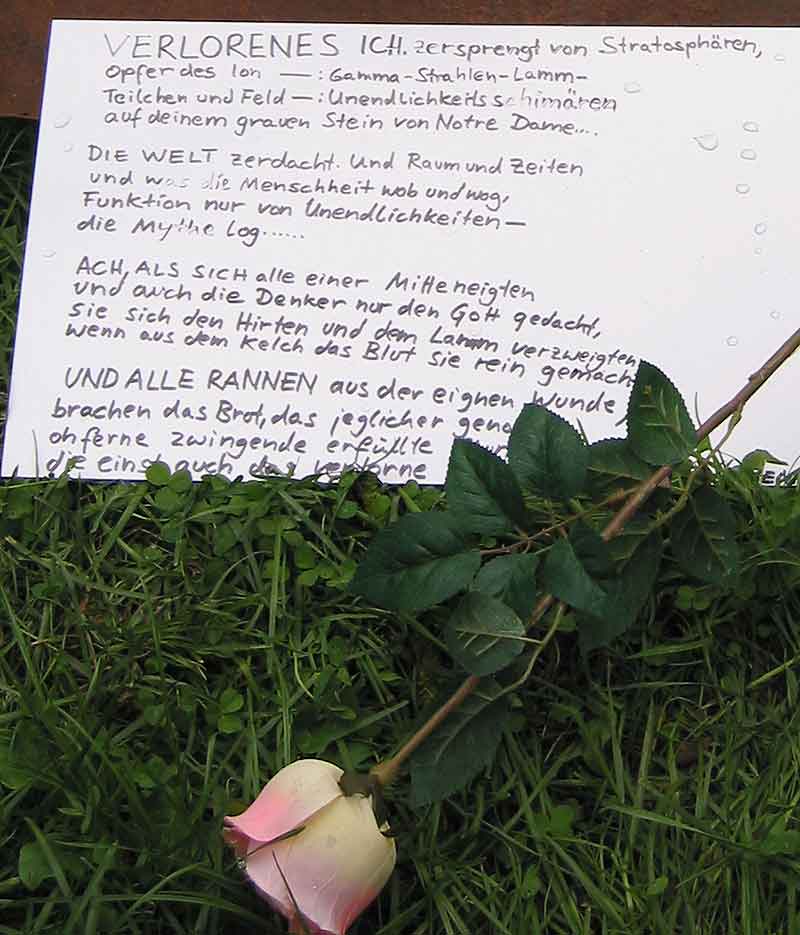 VERLORENES ICH. zersprengt von Stratosphären,
Opfer des Ion —: Gamma-Strahlen-Lamm-
Teilchen und Feld —: Unendlichkeitsschimären
auf deinem grauen Stein von Notre Dame....
DIE WELT zerdacht. Und Raum und Zeiten
und was die Menschheit wob und wog,
Funktion nur von Unendlichkeiten—
die Mythe log......
ACH, ALS SICH alle einer Mitte neigten
und auch die Denker nur den Gott gedacht,
sie sich den Hirten und dem Lamm verzweigten
wenn aus dem Kelch das Blut sie rein gemacht
UND ALLE RANNEN aus der eignen Wunde,
brachen das Brot, das jeglicher
oh ferne zwingende erfüllte
die einst auch das verlorne